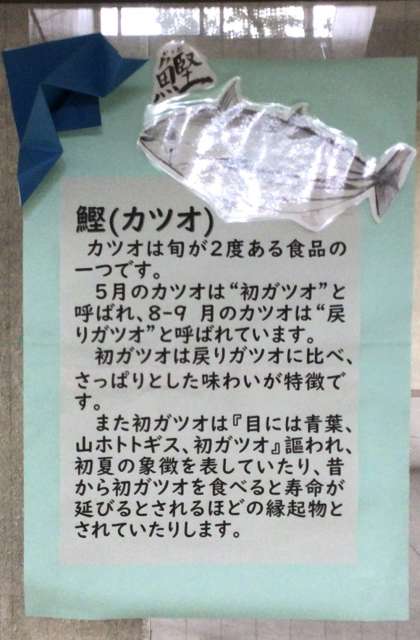 鰹
鰹(カツオ)
カツオは旬が2度ある食品の
一つです。
5月のカツオは“初ガツオ”と
呼ばれ、8-9 月のカツオは“戻
りガツオ”と呼ばれています。
初ガツオは戻りガツオに比べ、
さっぱりとした味わいが特徴で
す。
また初ガツオは『目には青葉、
山ホトトギス、初ガツオ』謳われ、
初夏の象徴を表していたり、昔
から初ガツオを食べると寿命が
延びるとされるほどの縁起物と
されていたりします。